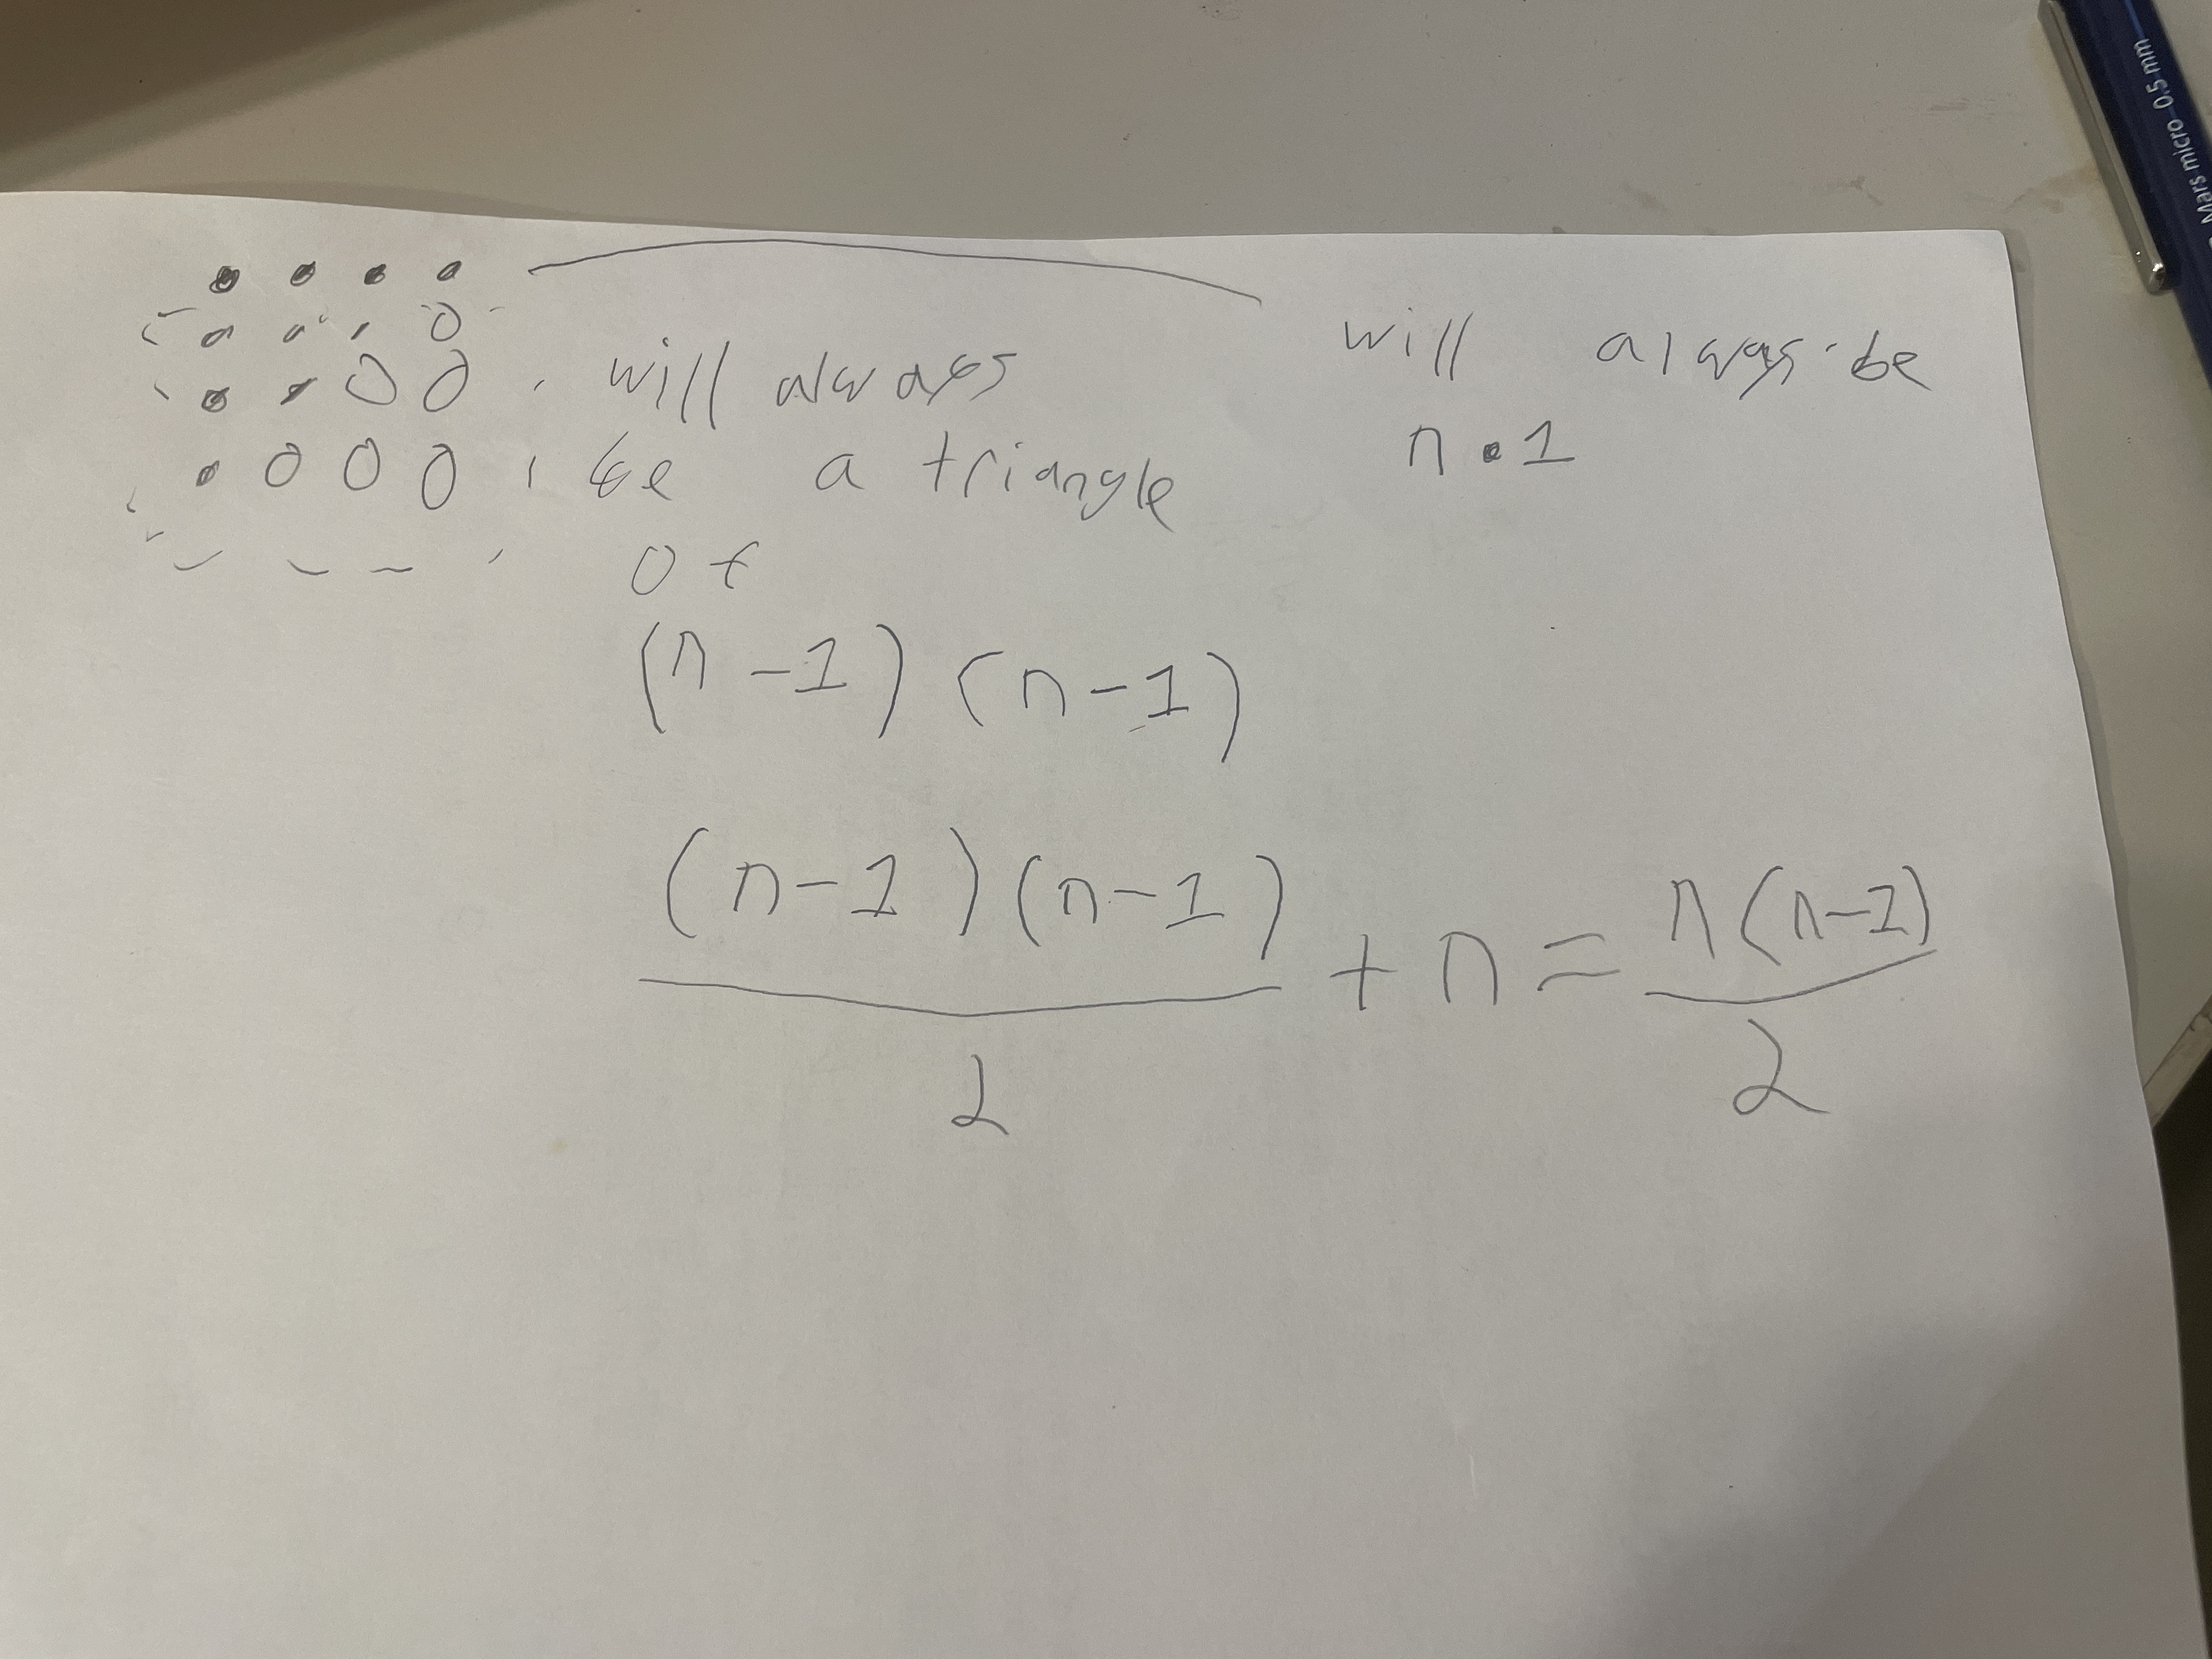 will always be
n • 1
will always
be a triangle
of
(n-1)(n-1)
(n-1)(n-1)/2 + n = n(n-1)/2
Mars micro 0,5 mm